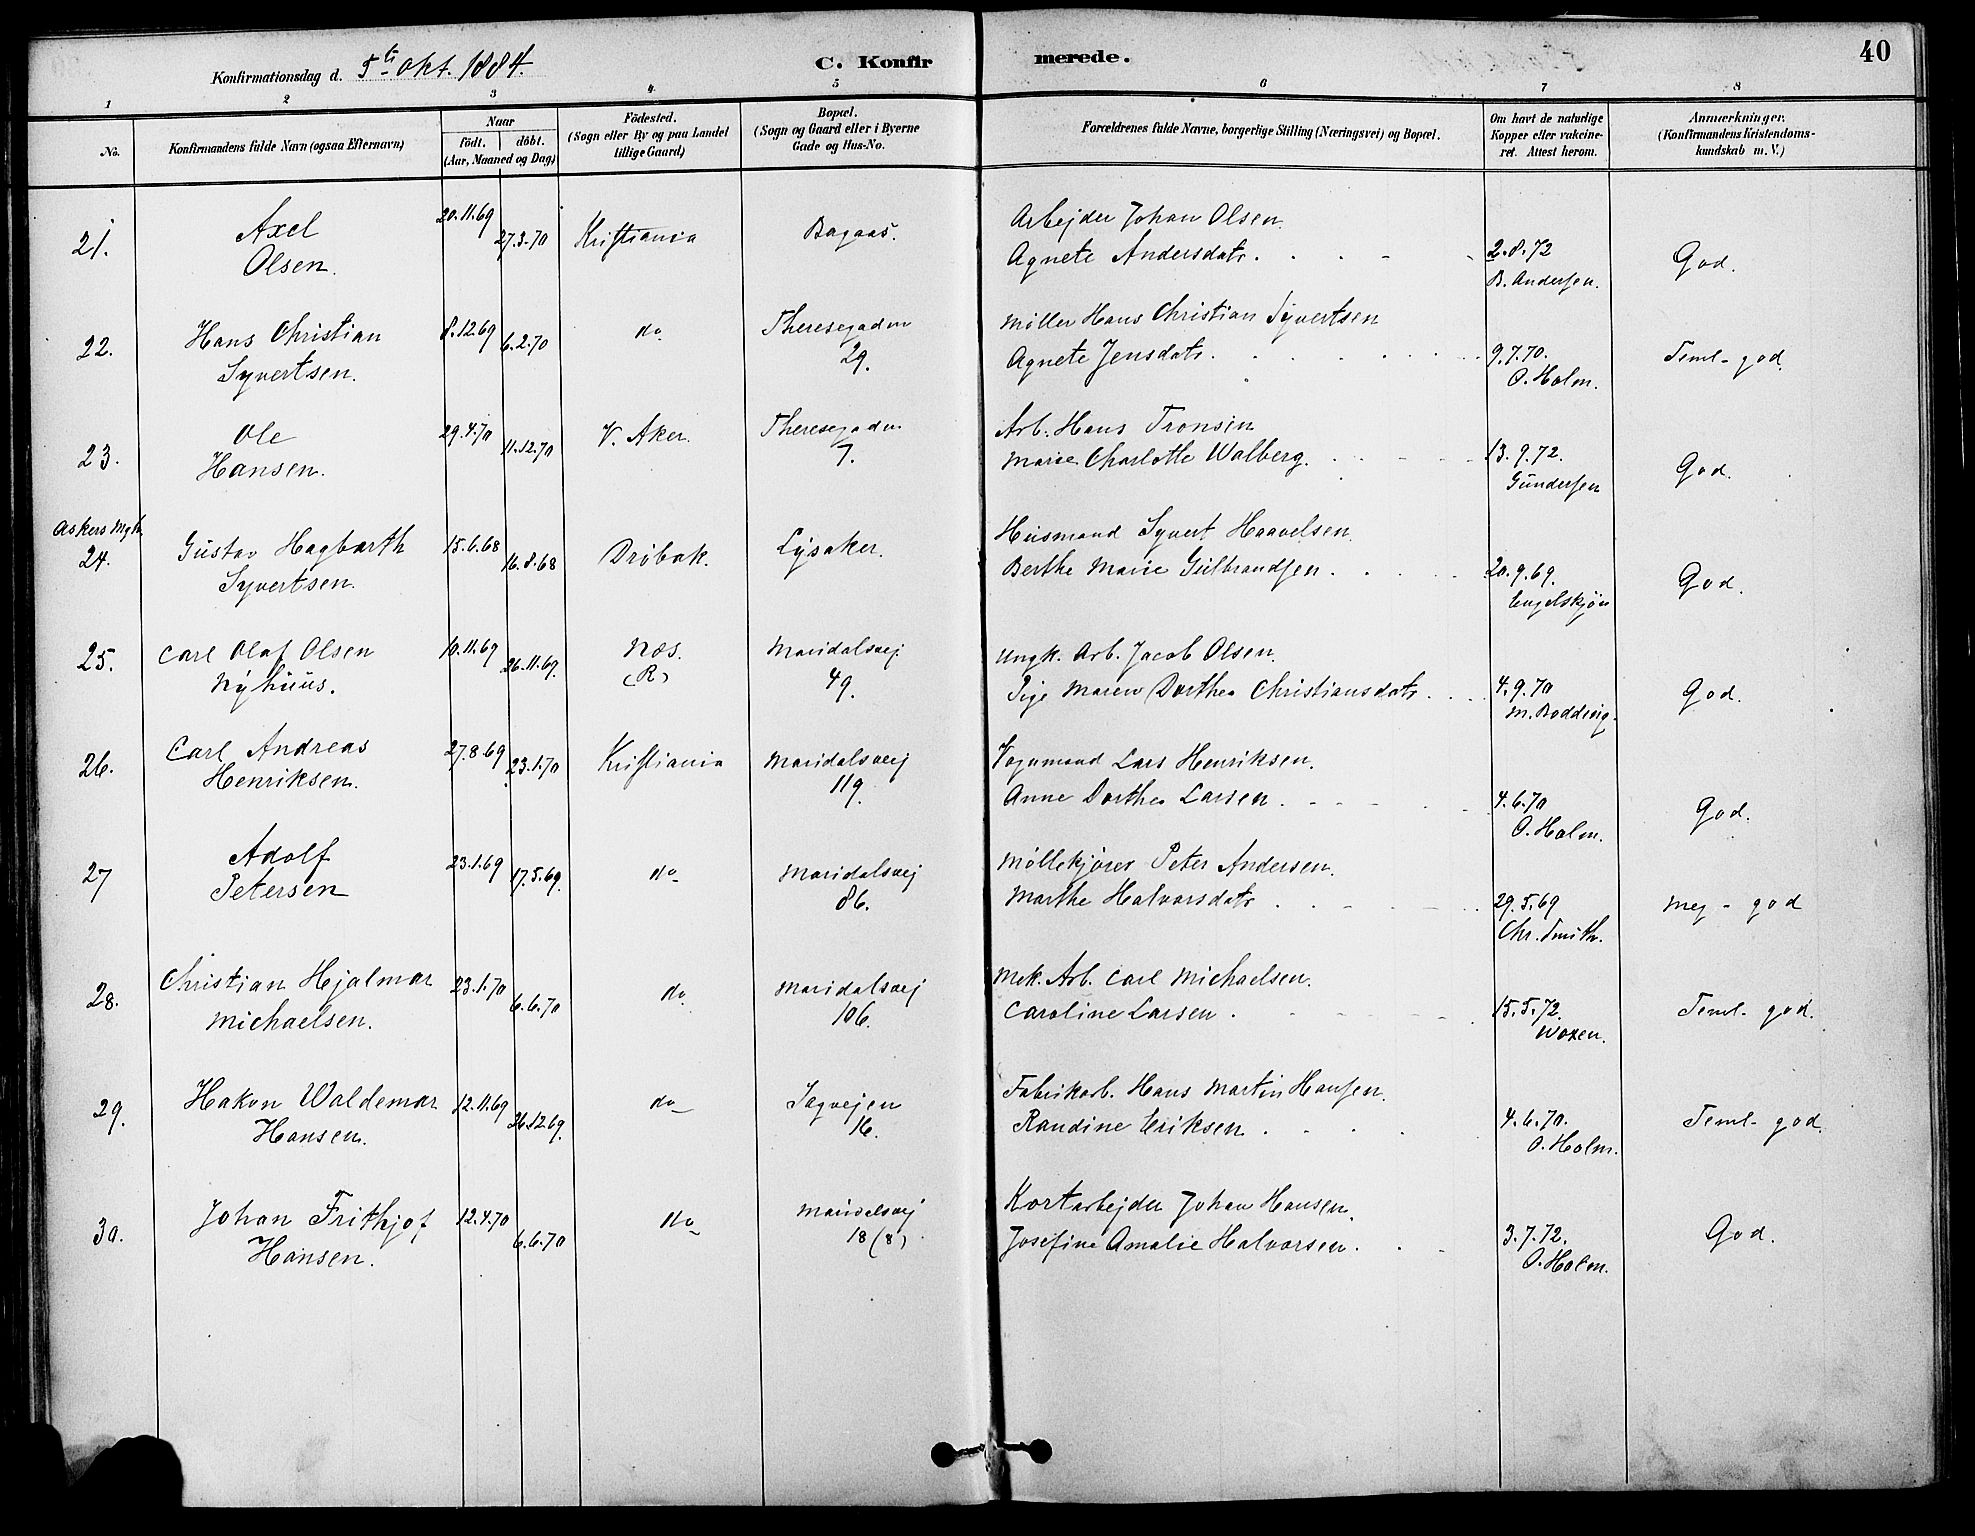 40
Konfirmationsdag d. 5te Okt. 1884.
C. Konfir
merede.
1 2 3 4 5 6 7 8
No.
Konfirmandens fulde Navn (ogsaa Efternavn)
Naar
födt. döbt.
(Aar, Maaned og Dag)
Födested.
(Sogn eller By og paa Landet
tillige Gaard)
Bopæl.
(Sogn og Gaard eller i Byerne
Gade og Hus-No.
Forældrenes fulde Navne, borgerlige Stilling (Næringsvei) og Bopæl.
Om havt de naturlige
Kopper eller vakcine-
ret. Attest herom.
Anmærkninger.
(Konfirmandens Kristendoms-
kundskab m. V.)
21.
Axel
Olsen.
20.11.69
27.3.70
Kristiania
Bagaas.
Arbejder Johan Olsen.
Agnete Andersdatr.
2.8.72
B. Andersen.
God.
22.
Hans Christian
Syvertsen.
8.12.69
6.2.70
do
Theresegaden
29.
Møller Hans Christian Syvertsen
Agnete Jensdatr.
9.7.70.
O. Holm.
Teml-god.
23.
Ole
Hansen.
29.4.70
11.12.70
V. Aker.
Theresegaden
7.
Arb. Hans Tronsen
Marie Charlotte Walberg.
13.9.72.
Gundersen
God.
Askers Mgh.
24.
Gustav Hagbarth
Syvertsen.
15.6.68
16.8.68
Drøbak.
Lysaker.
Husmand Syvert Haavelsen.
Berthe Marie Gulbrandsen.
20.9.69.
Engelskjøn
God.
25.
Carl Olaf Olsen
Nyhuus.
10.11.69
26.11.69.
Næs.
(R)
Maridalsvej.
49.
Ungk. Arb. Jacob Olsen.
Pige Maren Dorthea Christiansdatr.
4.9.70
M. Rodding.
God.
26.
Carl Andreas
Henriksen.
27.8.69
23.1.70
Kristiania
Maridalsvej
119.
Vognmand Lars Henriksen.
Anne Dorthea Larsen.
4.6.70
O. Holm.
God.
27
Adolf
Petersen
23.1.69
17.5.69.
do
Maridalsvej
86.
Møllekjører Peter Andersen.
Marthe Halvorsdatr.
29.5.69
Chr. Smith.
Meg-god
28.
Christian Hjalmar
Michaelsen.
23.1.70
6.6.70
do
Maridalsvej
106.
Mek. Arb. Carl Michaelsen.
Caroline Larsen.
15.5.72.
Woxen.
Teml-god.
29.
Hakon Waldemar
Hansen.
12.11.69
26.12.69.
do
Sagvejen
16.
Fabrikarb. Hans Martin Hansen.
Randine Eriksen.
4.6.70.
O. Holm.
Teml-god.
30.
Johan Frithjof
Hansen.
12.4.70
6.6.70
do
Maridalsvej
18 (8)
Kortarbejder Johan Hansen.
Josefine Amalie Halvorsen.
3.7.72.
O. Holm.
God.